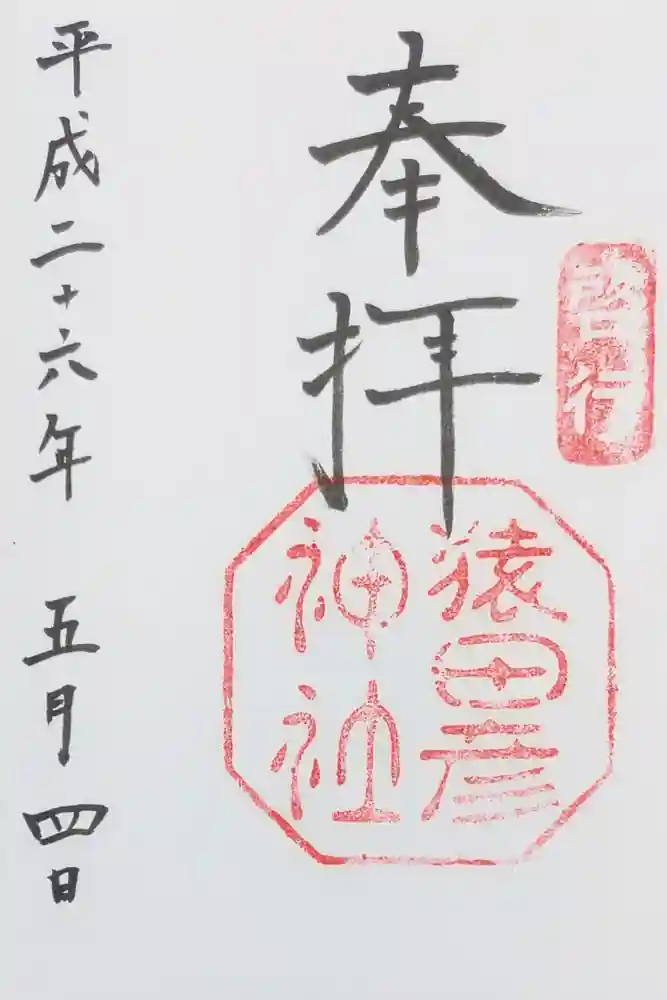 啓行
奉拝
猿田彦
神社
平成二十六年 五月 四日